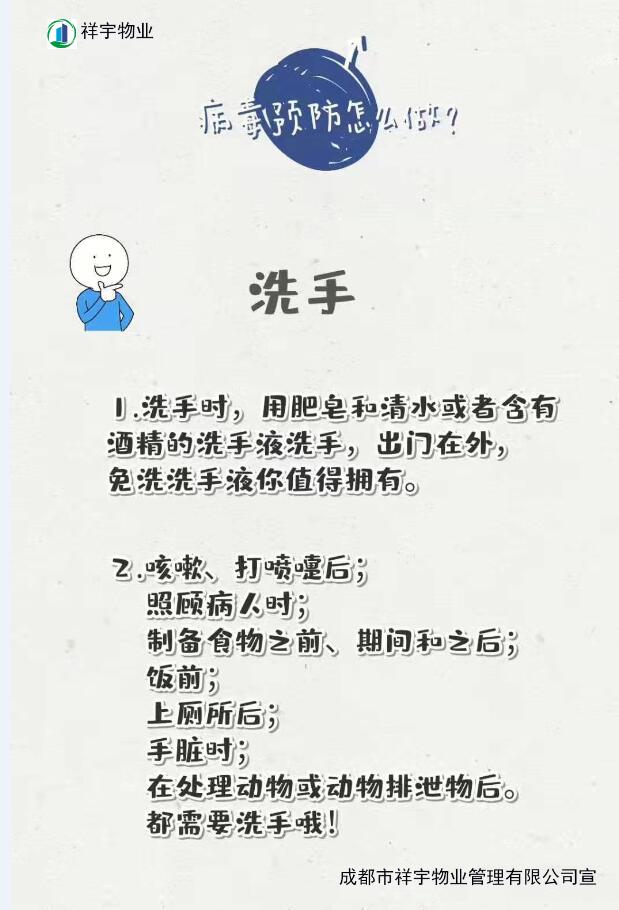 祥宇物业
病毒预防怎么做?
洗手
1.洗手时，用肥皂和清水或者含有
酒精的洗手液洗手，出门在外，
免洗洗手液你值得拥有。
2.咳嗽、打喷嚏后；
照顾病人时；
制备食物之前、期间和之后；
饭前；
上厕所后；
手脏时；
在处理动物或动物排泄物后。
都需要洗手哦！
成都市祥宇物业管理有限公司宣